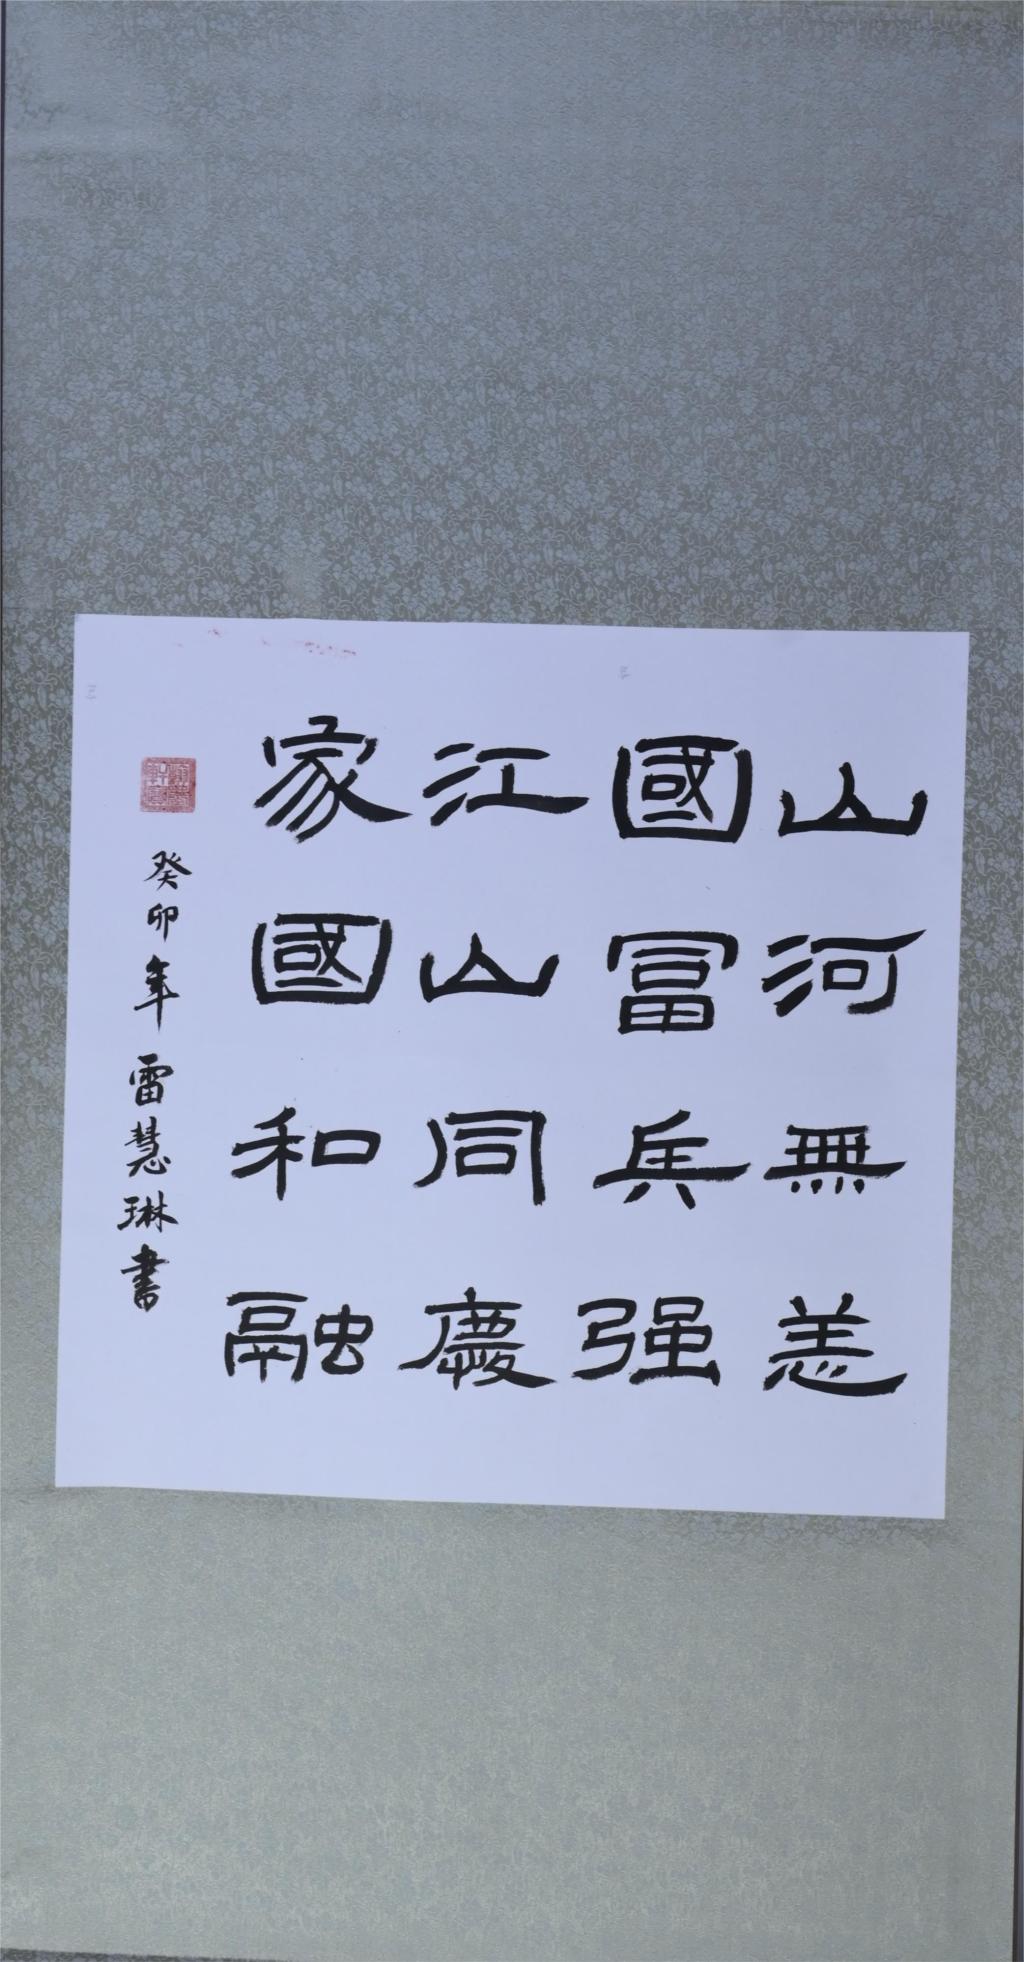 山河無恙
國富兵强
江山同慶
家國和融
癸卯年雷慧琳書